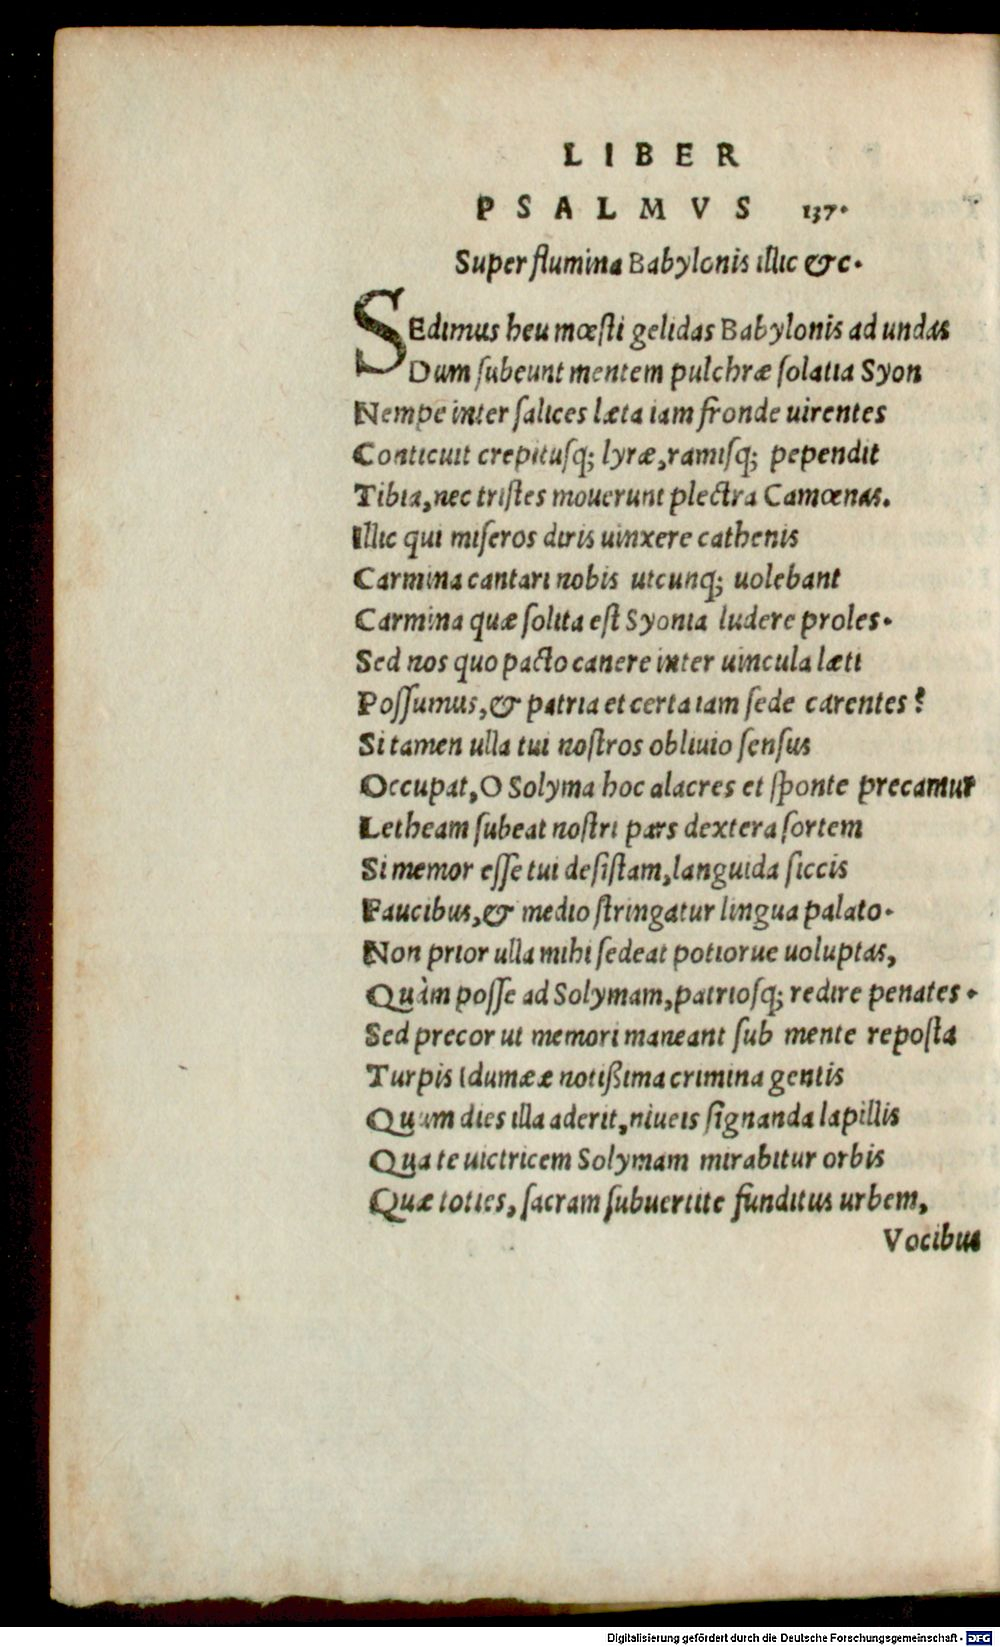 LIBER
PSALMVS 137.
Super flumina Babylonis illic &c.
SEdimus heu mœsti gelidas Babylonis ad undas
Dum ſubeunt mentem pulchræ ſolatia Syon
Nempe inter ſalices læta iam fronde uirentes
Conticuit crepituſq; lyræ, ramiſq; pependit
Tibia, nec triſtes mouerunt plectra Camœnas.
Illic qui miſeros diris uinxere cathenis
Carmina cantari nobis utcunq; uolebant
Carmina quæ ſolita eſt Syonia ludere proles.
Sed nos quo pacto canere inter uincula læti
Poſſumus, & patria et certa iam ſede carentes?
Si tamen ulla tui noſtros obliuio ſenſus
Occupat, O Solyma hoc alacres et ſponte precamur
Letheam ſubeat noſtri pars dextera ſortem
Si memor eſſe tui deſiſtam, languida ſiccis
Faucibus, & medio ſtringatur lingua palato.
Non prior ulla mihi ſedeat potiorue uoluptas,
Quàm poſſe ad Solymam, patrioſq; redire penates.
Sed precor ut memori maneant ſub mente repoſta
Turpis Idumææ notißima crimina gentis
Quum dies illa aderit, niueis ſignanda lapillis
Qua te uictricem Solymam mirabitur orbis
Quæ toties, ſacram ſubuertite funditus urbem,
Vocibus
Digitalisierung gefördert durch die Deutsche Forschungsgemeinschaft - DFG